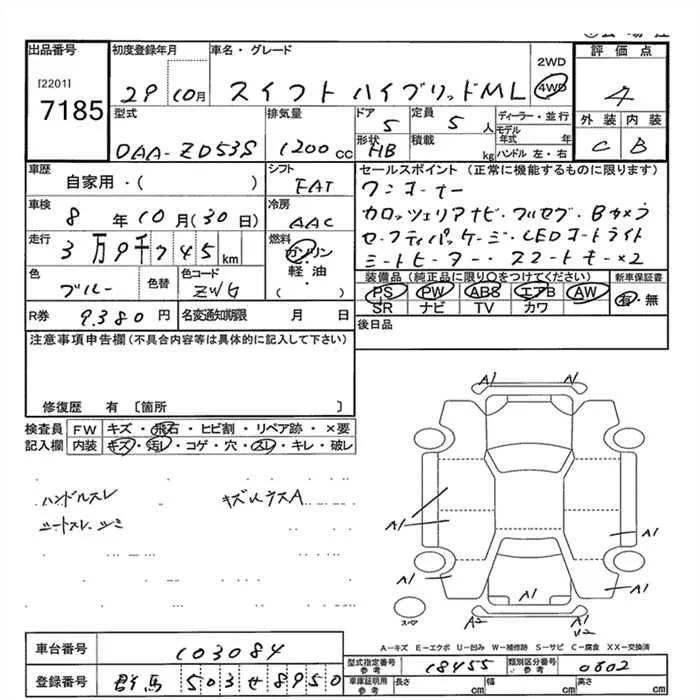 出品番号 初度登録年月 車名・グレード 2WD 評価点
[2201]
7185 29 10月 スイフト ハイブリッドML 4WD 4
型式 排気量 ドア 5 定員 5 人 ディーラー・並行 外装 内装
モデル年式 年
DAA-ZD53S 1200 cc 形状 HB 積載 kg ハンドル 左・右 C B
車歴 シフト セールスポイント (正常に機能するものに限ります)
自家用・( ) FAT ワンオーナー
車検 冷房 カロッツェリアナビ・フルセグ・Bカメラ
8 年 10 月 (30 日) AAC セーフティパッケージ・LEDオートライト
走行 燃料 シートヒーター・スマートキー×2
3万9千745 km ガソリン
軽・油
( ・ )
装備品 (純正品に限り○をつけてください) 新車保証書
色 色替 色コード PS PW ABS エアB AW 有・無
ブルー ZWG SR ナビ TV カワ
R券 9.380 円 名変通知期限 月 日 後日品
注意事項申告欄 (不具合内容等は具体的に記入して下さい)
修復歴 有 〔箇所 〕
検査員 FW キズ・飛石・ヒビ割・リペア跡・×要
記入欄 内装 キズ・汚レ・コゲ・穴・スレ・キレ・破レ
ハンドルスレ キズ、ウスA
シートスレ、シミ
A1 A1
A1 A1
A1 A1 A1
スペア A2 A1
U2
A-キズ E-エクボ U-凹み W-補修跡 S-サビ C-腐食 XX-交換済
車台番号 103084
型式指定番号 参考 18455 類別区分番号 参考 0802
登録番号 群馬 503 せ 8950 車庫証明用 参考 長さ cm 幅 cm 高さ cm